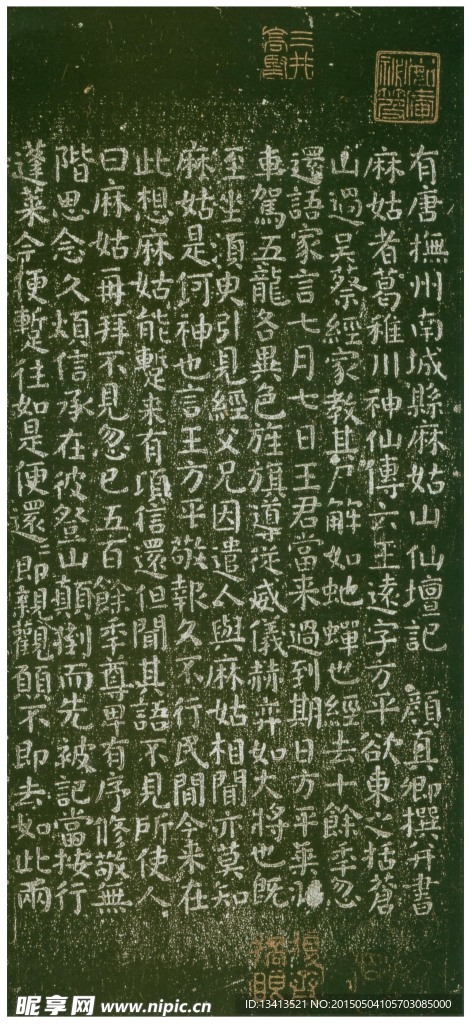 有唐撫州南城縣麻姑山仙壇記 顏真卿撰并書
麻姑者葛稚川神仙傳云王遠字方平欲東之括蒼
山過吳蔡經家教其尸解如虵蟬也經去十餘年忽
還語家言七月七日王君當来過到期日方平乘羽
車駕五龍各異色旌旗導從威儀赫弈如大將也既
至坐須臾引見經父兄因遣人與麻姑相聞亦莫知
麻姑是何神也言王方平敬報久不行民間今来在
此想麻姑能蹔来有頃信還但聞其語不見所使人
曰麻姑再拜不見忽已五百餘年尊卑有序修敬無
階思念久煩信承在彼登山顛倒而先被記當按行
蓬萊今便蹔往如是便還〻即親觀願不即去如此兩
昵享网 www.nipic.cn
ID:13413521 NO:20150504105703085000